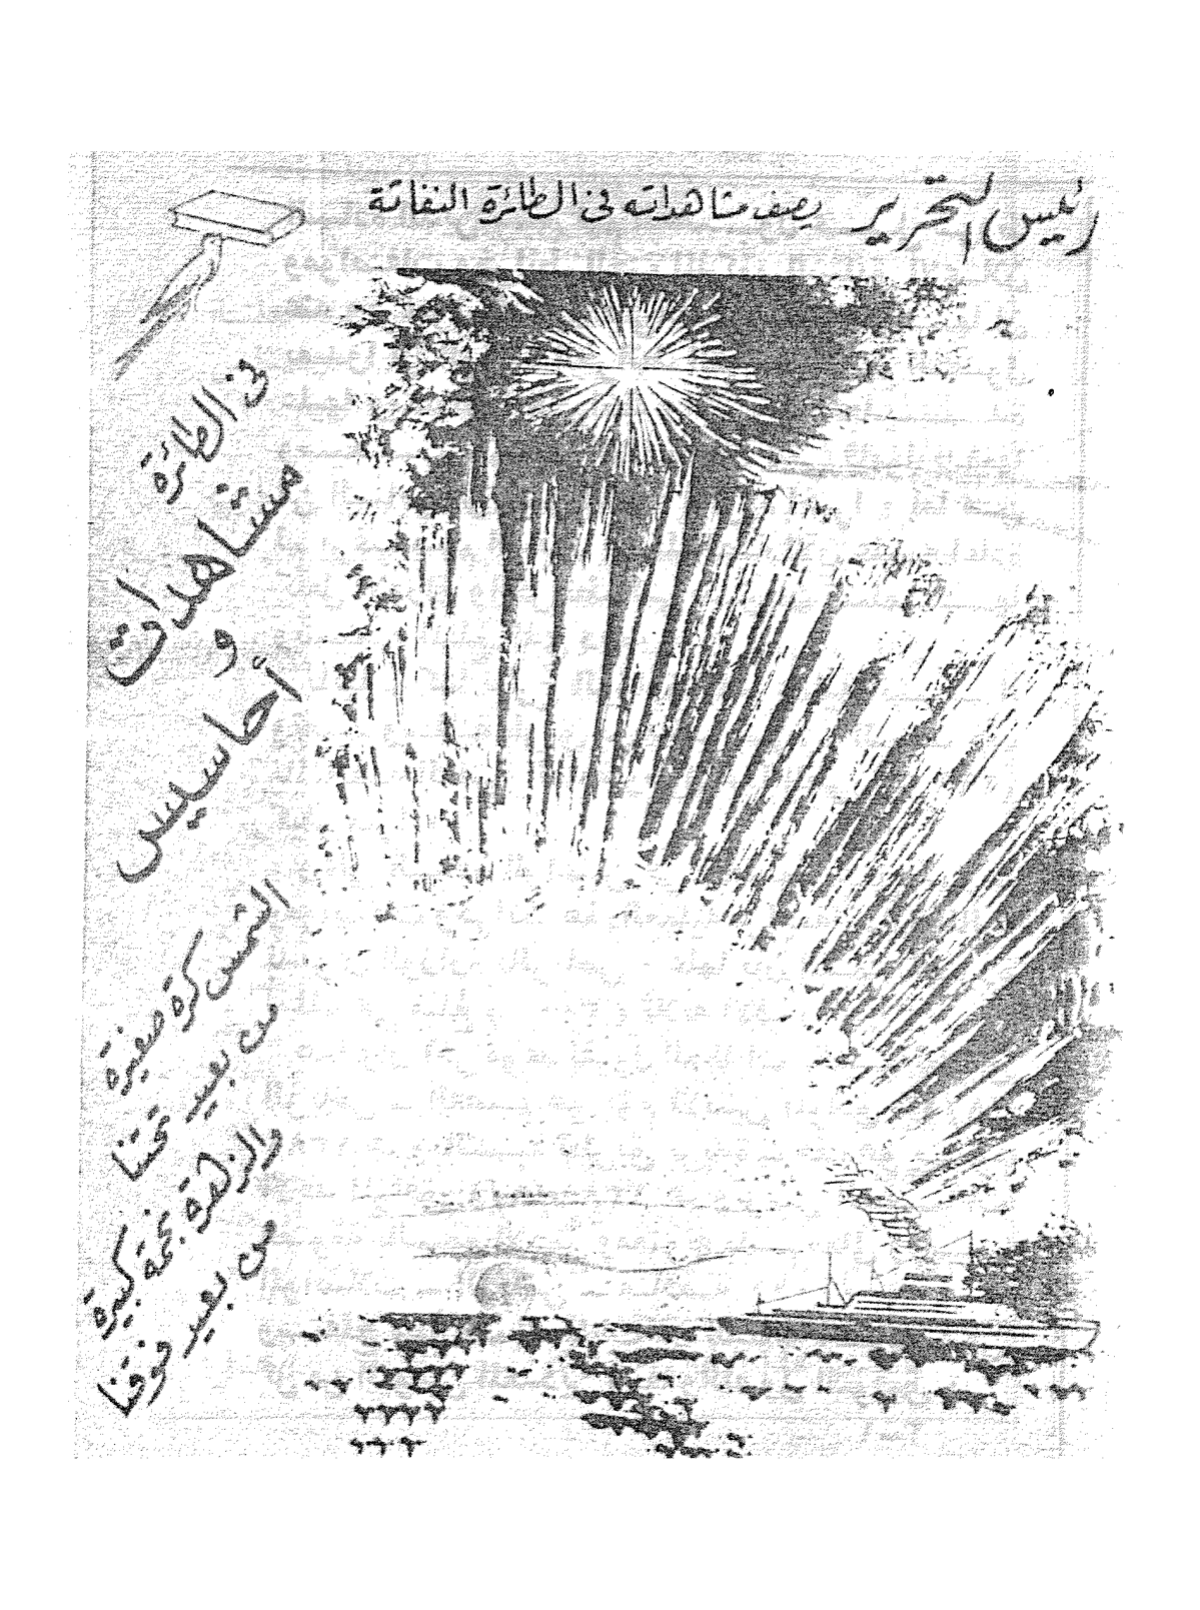 رئيس التحرير يصف مشاهداته فى الطائرة النفاثة
فى الطائرة
مشاهدات
و
أحاسيس
الشمس كرة صغيرة
من بعيد تحتنا
والزهرة نجمة كبيرة
من بعيد فوقنا